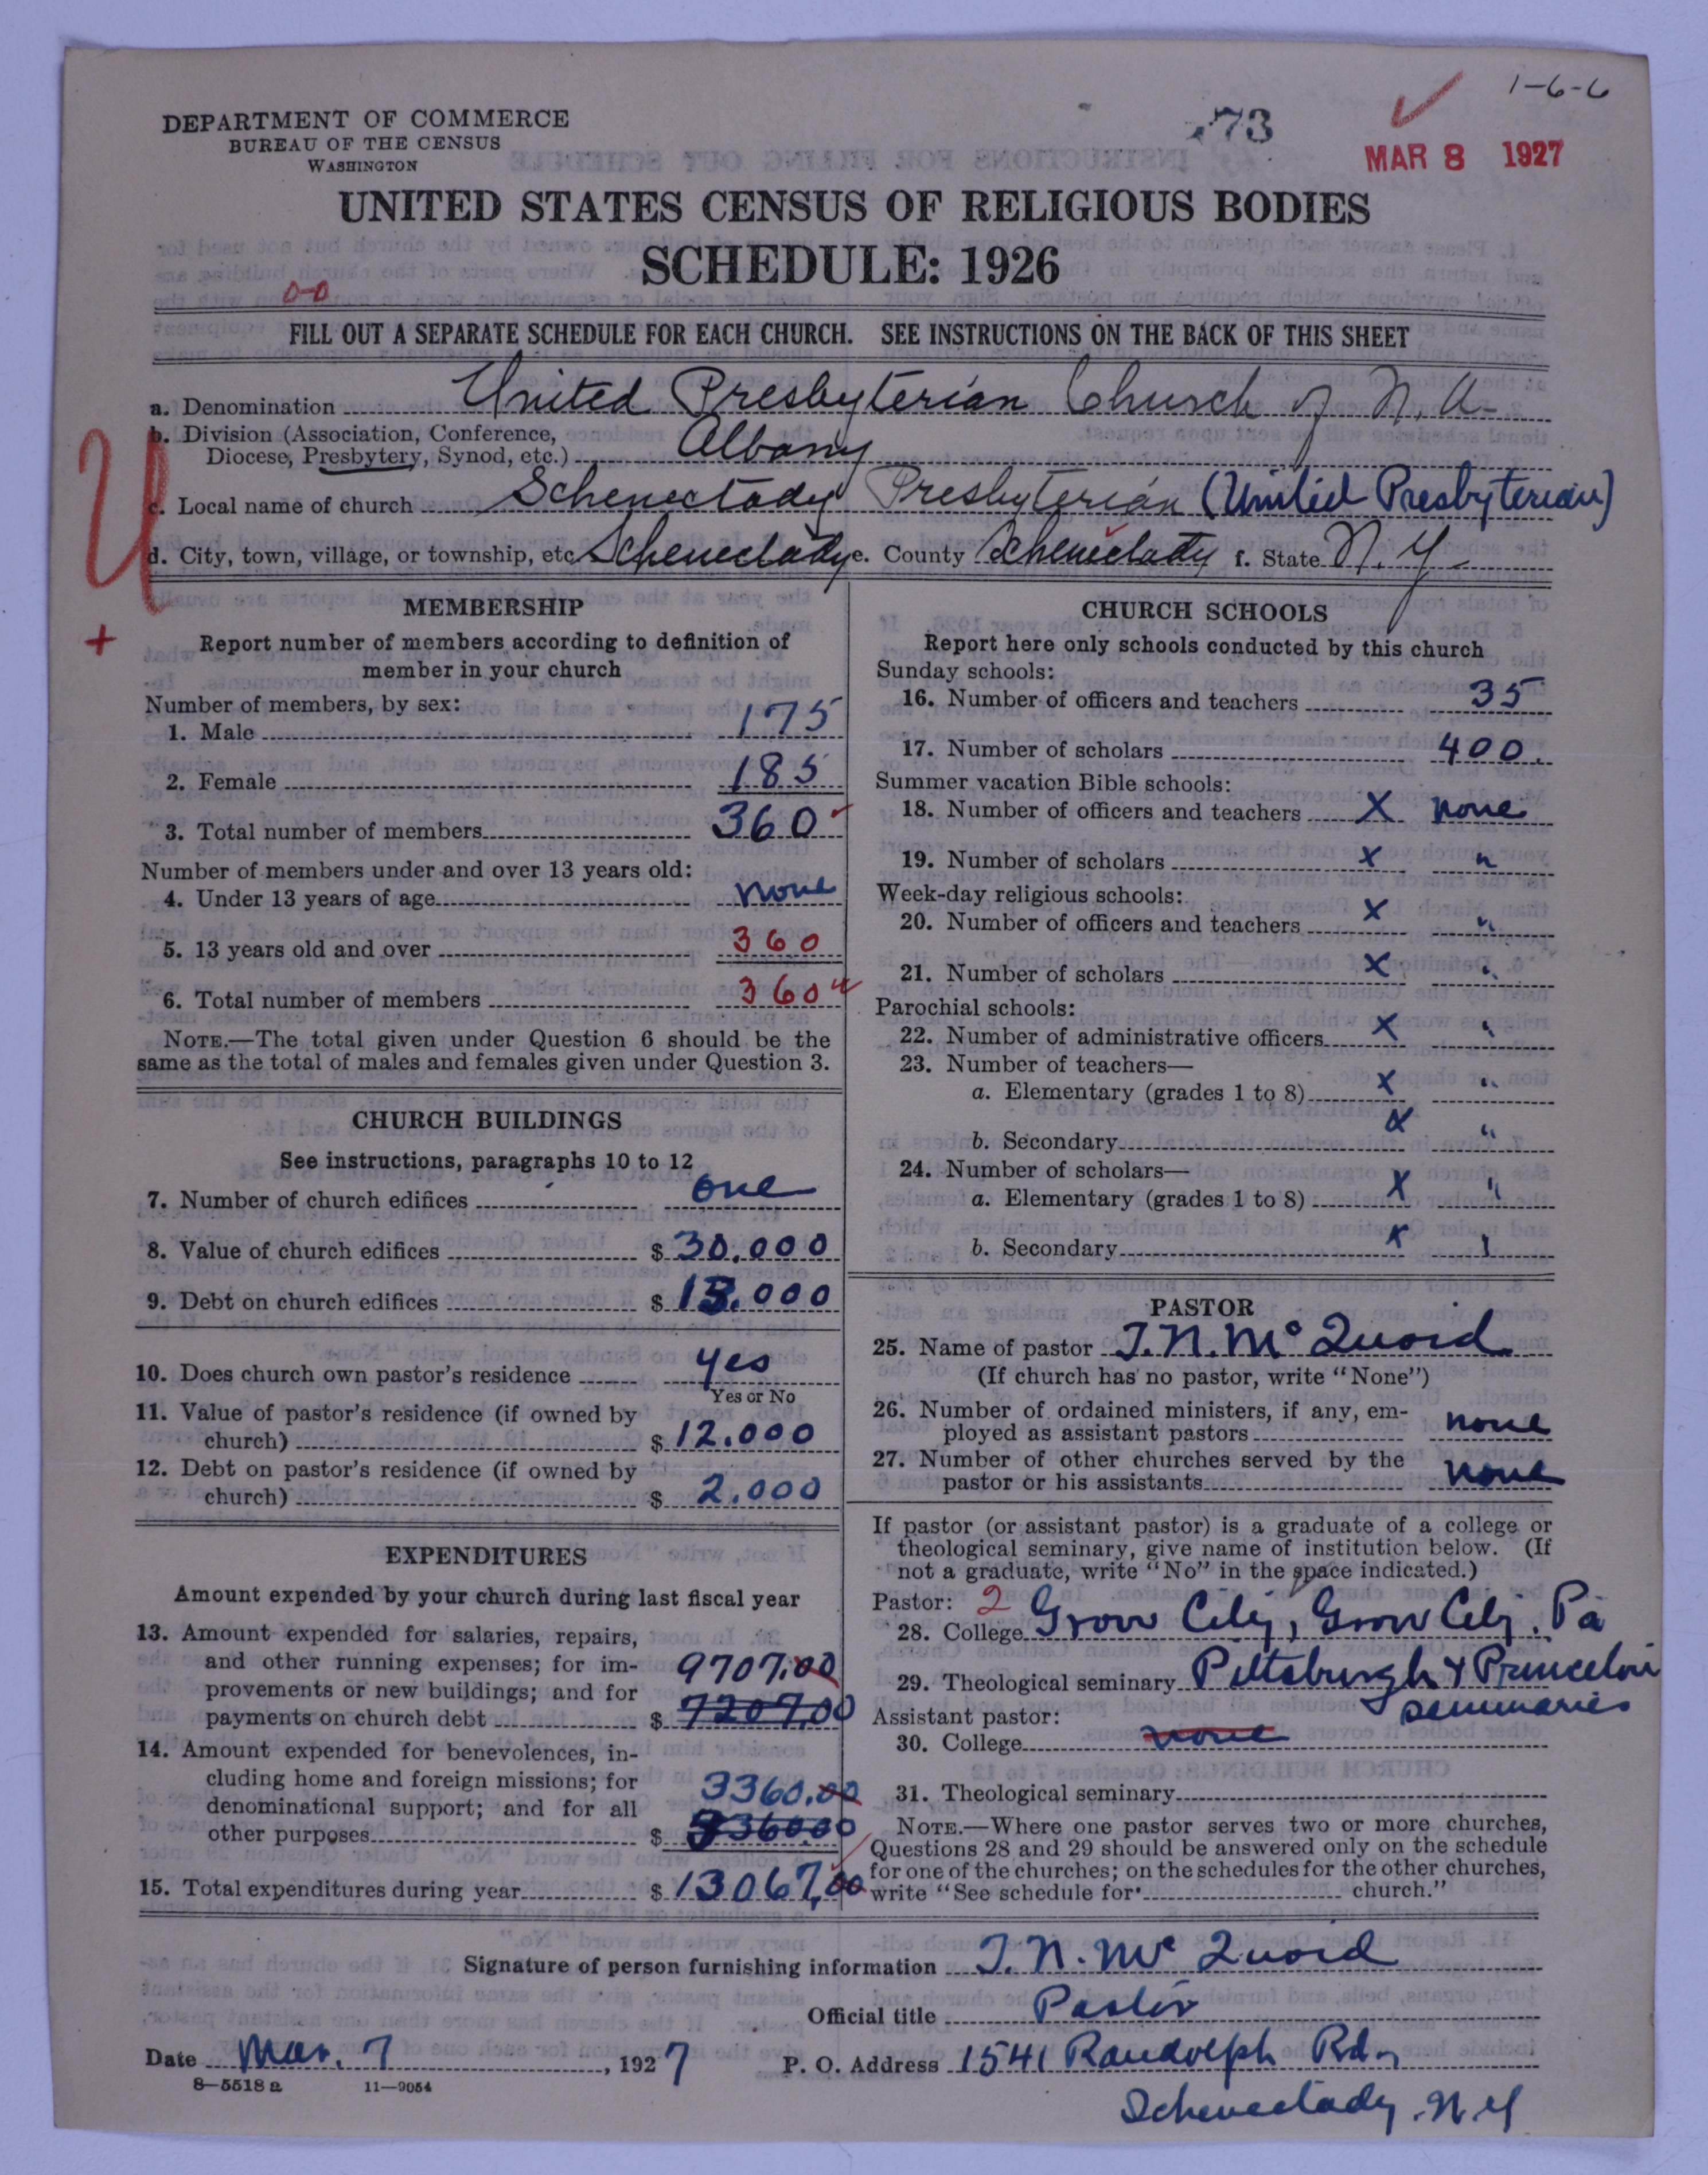 1-6-6
73
MAR 8 1927
DEPARTMENT OF COMMERCE
BUREAU OF THE CENSUS
WASHINGTON
UNITED STATES CENSUS OF RELIGIOUS BODIES
SCHEDULE: 1926
0-0
FILL OUT A SEPARATE SCHEDULE FOR EACH CHURCH. SEE INSTRUCTIONS ON THE BACK OF THIS SHEET
a. Denomination United Presbyterian Church of N. A.
b. Division (Association, Conference,
Diocese, Presbytery, Synod, etc.) Albany
c. Local name of church Schenectady Presbyterian (United Presbyterian)
d. City, town, village, or township, etc Schenectady e. County Schenectady f. State N. Y.
U
+
MEMBERSHIP
Report number of members according to definition of
member in your church
Number of members, by sex:
1. Male 175
2. Female 185
3. Total number of members 360
Number of members under and over 13 years old:
4. Under 13 years of age none
5. 13 years old and over 360
6. Total number of members 360
NOTE.—The total given under Question 6 should be the
same as the total of males and females given under Question 3.
CHURCH BUILDINGS
See instructions, paragraphs 10 to 12
7. Number of church edifices one
8. Value of church edifices $ 30.000
9. Debt on church edifices $ .000
10. Does church own pastor's residence yes
Yes or No
11. Value of pastor's residence (if owned by
church) $ 12.000
12. Debt on pastor's residence (if owned by
church) $ 2.000
EXPENDITURES
Amount expended by your church during last fiscal year
13. Amount expended for salaries, repairs,
and other running expenses; for im-
provements or new buildings; and for
payments on church debt $ 9707.00
7207.00
14. Amount expended for benevolences, in-
cluding home and foreign missions; for
denominational support; and for all
other purposes $ 3360.00
15. Total expenditures during year $ 13067.00
CHURCH SCHOOLS
Report here only schools conducted by this church
Sunday schools:
16. Number of officers and teachers 35
17. Number of scholars 400.
Summer vacation Bible schools:
18. Number of officers and teachers X none
19. Number of scholars X "
Week-day religious schools:
20. Number of officers and teachers X "
21. Number of scholars X "
Parochial schools:
22. Number of administrative officers X "
23. Number of teachers—
a. Elementary (grades 1 to 8) X "
b. Secondary X "
24. Number of scholars—
a. Elementary (grades 1 to 8) X "
b. Secondary X "
PASTOR
25. Name of pastor T. N. McQuoid
(If church has no pastor, write "None")
26. Number of ordained ministers, if any, em-
ployed as assistant pastors none
27. Number of other churches served by the
pastor or his assistants none
If pastor (or assistant pastor) is a graduate of a college or
theological seminary, give name of institution below. (If
not a graduate, write "No" in the space indicated.)
Pastor: 2
28. College Grove City, Grove City, Pa
29. Theological seminary Pittsburgh & Princeton
seminaries
Assistant pastor:
30. College none
31. Theological seminary
NOTE.—Where one pastor serves two or more churches,
Questions 28 and 29 should be answered only on the schedule
for one of the churches; on the schedules for the other churches,
write "See schedule for church."
Signature of person furnishing information T. N. McQuoid
Official title Pastor
Date Mar. 7, 1927 P. O. Address 1541 Randolph Rd.
8—5518 a 11—9054
Schenectady N.Y